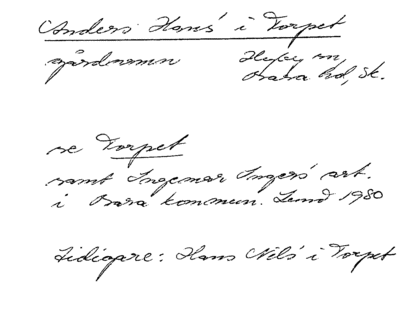 Anders Hans' i Torpet
gårdnamn Hyby sn,
Bara hd, Sk.
se Torpet
samt Ingemar Ingers' art.
i Bara kommun. Lund 1980
Tidigare: Hans Nils' i Torpet